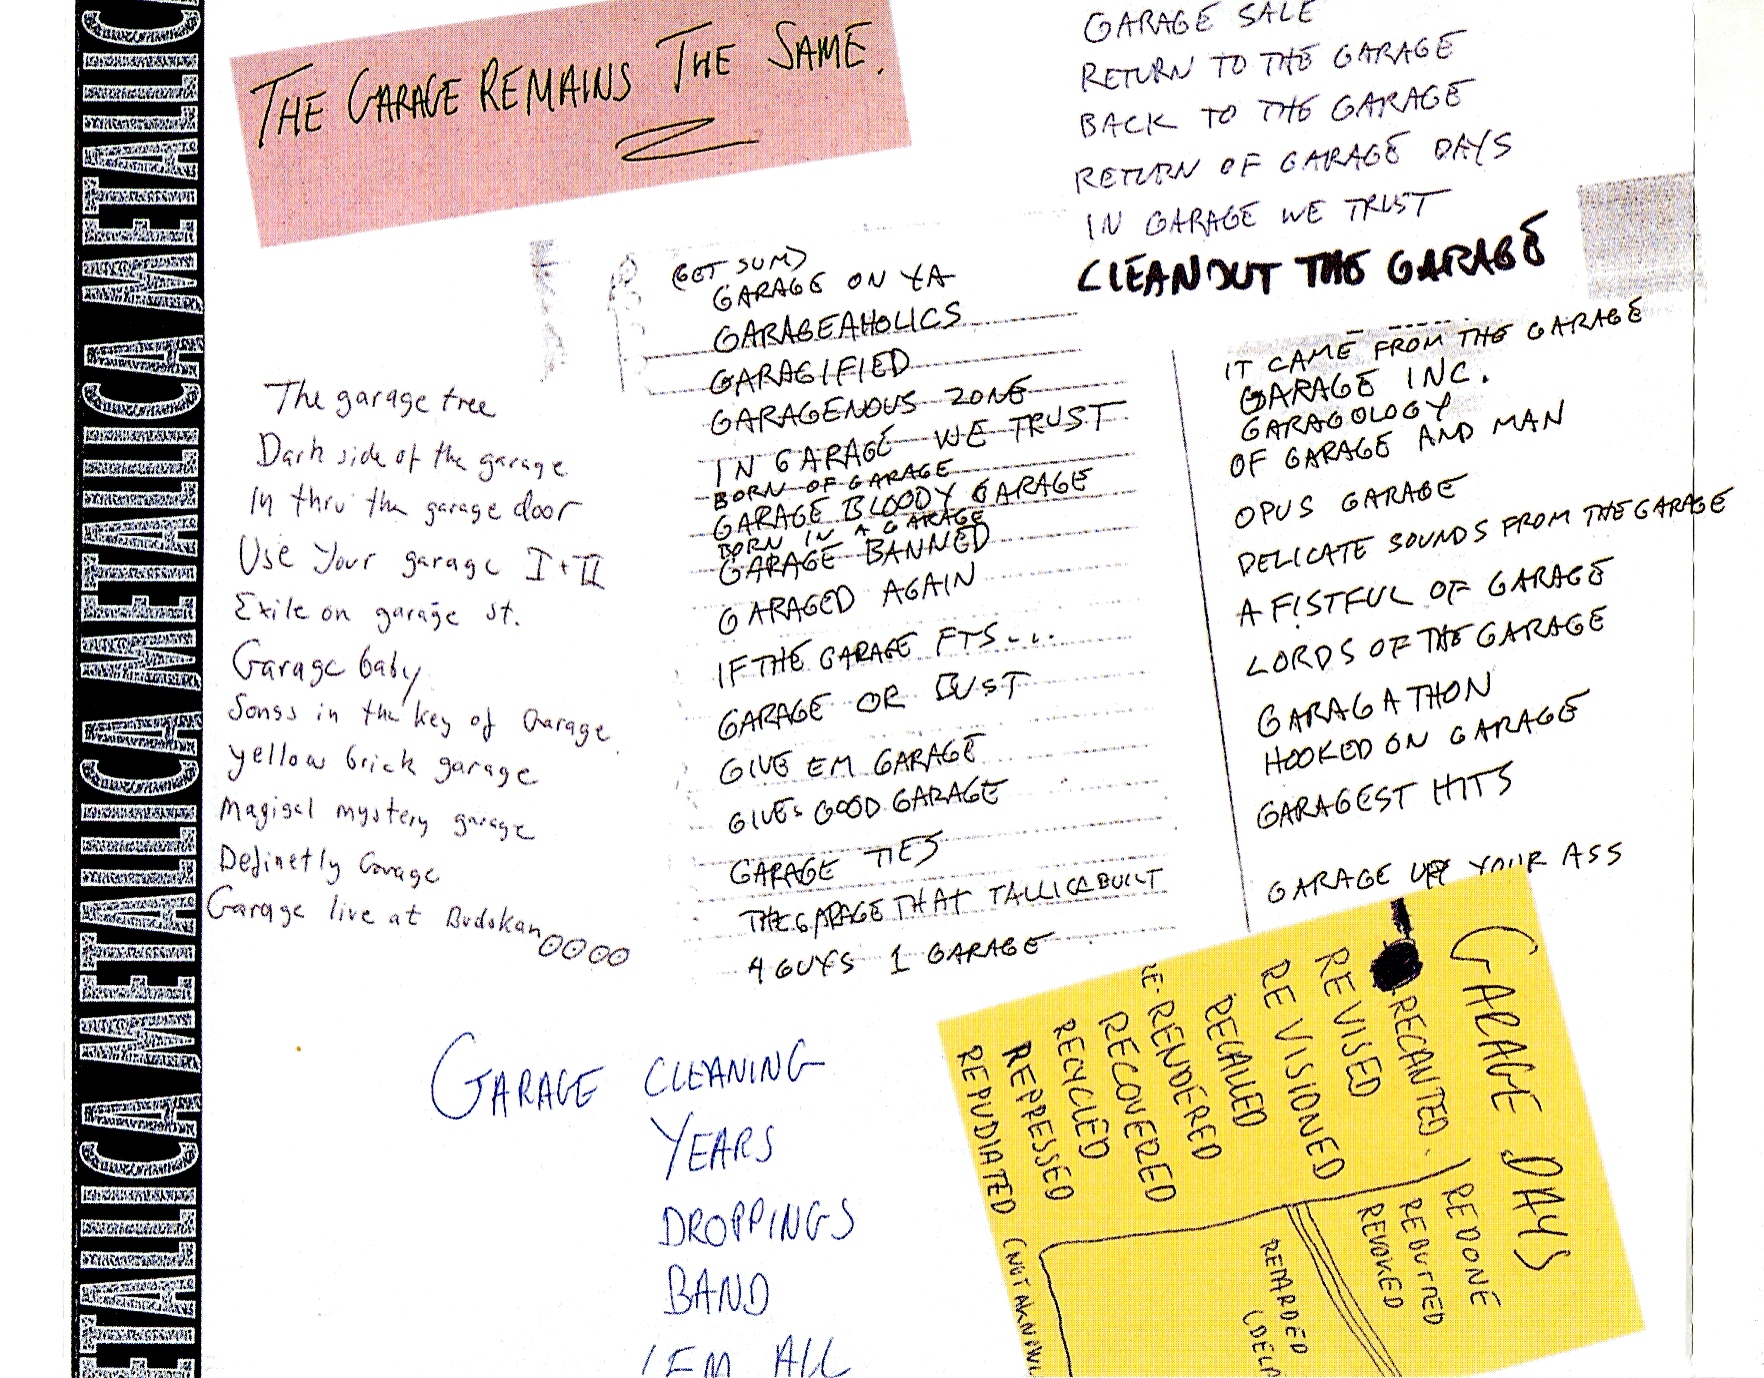 METALLICA METALLICA METALLICA METALLICA METALLICA
THE GARAGE REMAINS THE SAME.
GARAGE SALE
RETURN TO THE GARAGE
BACK TO THE GARAGE
RETURN OF GARAGE DAYS
IN GARAGE WE TRUST
CLEAN OUT THE GARAGE
The garage tree
Dark side of the garage
In thru the garage door
Use Your garage I + II
Exile on garage st.
Garage baby
Songs in the key of Garage
yellow brick garage
Magical mystery garage
Definetly Garage
Garage live at Budokan
(GET SUM)
GARAGE ON YA
GARAGEAHOLICS
GARAGIFIED
GARAGENOUS ZONE
IN GARAGE WE TRUST
BORN OF GARAGE
GARAGE BLOODY GARAGE
BORN IN A GARAGE
GARAGE BANNED
GARAGED AGAIN
IF THE GARAGE FTS....
GARAGE OR BUST
GIVE EM GARAGE
GIVES GOOD GARAGE
GARAGE TIES
THE GARAGE THAT TALLICA BUILT
4 GUYS 1 GARAGE
IT CAME FROM THE GARAGE
GARAGE INC.
GARAGOLOGY
OF GARAGE AND MAN
OPUS GARAGE
DELICATE SOUNDS FROM THE GARAGE
A FISTFUL OF GARAGE
LORDS OF THE GARAGE
GARAGATHON
HOOKED ON GARAGE
GARAGEST HITS
GARAGE UP YOUR ASS
GARAGE CLEANING
YEARS
DROPPINGS
BAND
'EM ALL
GARAGE DAYS
RECANTED.) REDONE
REVISED REBUTTED
RE VISIONED REVOKED
RECALLED
RE-RENDERED RETARDED
RECOVERED (DELA
RECYCLED
REPRESSED
REPUDIATED (NOT AKNOWL